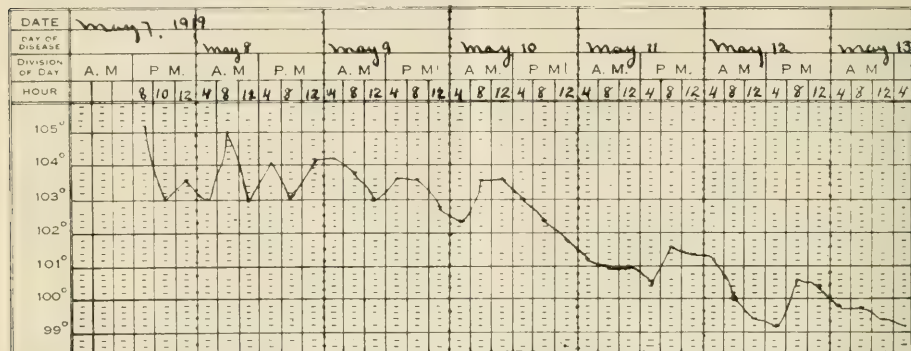 DATE May 7, 1919
DAY OF DISEASE May 8 May 9 May 10 May 11 May 12 May 13
DIVISION OF DAY A. M P M. A. M P M A M. P M' A M. P M A M. P M A M P M A M.
HOUR 8 10 12 4 8 12 4 8 12 4 8 12 4 8 12 4 8 12 4 8 12 4 8 12 4 8 12 4 8 12 4 8 12 4 8 12 4
105°
104°
103°
102°
101°
100°
99°